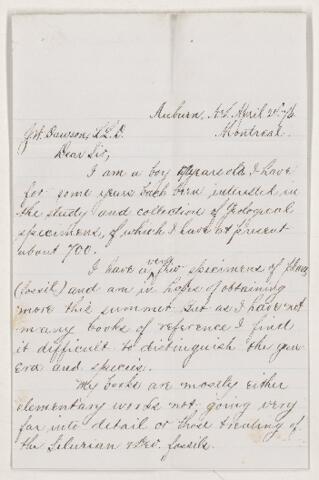 Auburn, N.Y. April 21st /76
J.W. Dawson, L.L.D. Montreal.
Dear Sir,
I am a boy years old I have
for some years back been interested in
the study and collection of Geological
specimens, of which I have at present
about 700.
I have a very few specimens of
(fossil) and am in hopes of obtaining
more this summer but as I have not
many books of reference I find
it difficult to distinguish the gen-
era and species.
My books are mostly either
elementary works not going very
far into detail or those treating of
the Silurian & Dev. fossils.